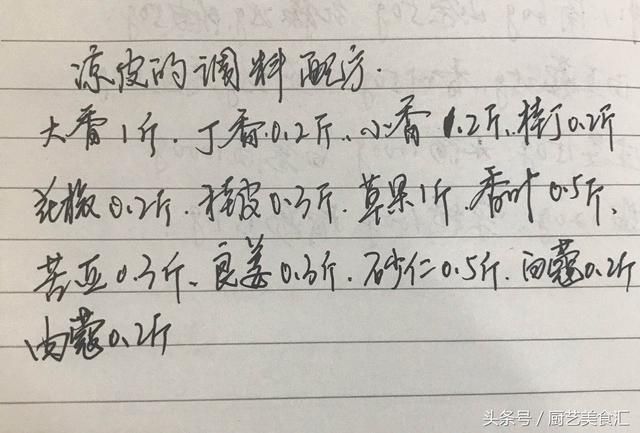 凉皮的调料配方.
大香1斤.丁香0.2斤、小香1.2斤、桂丁0.2斤
花椒0.2斤.桂皮0.3斤.草果1斤.香叶0.5斤、
苦豆0.3斤、良姜0.3斤.砂仁0.5斤.白蔻0.2斤
肉蔻0.2斤
头条号/厨艺美食汇